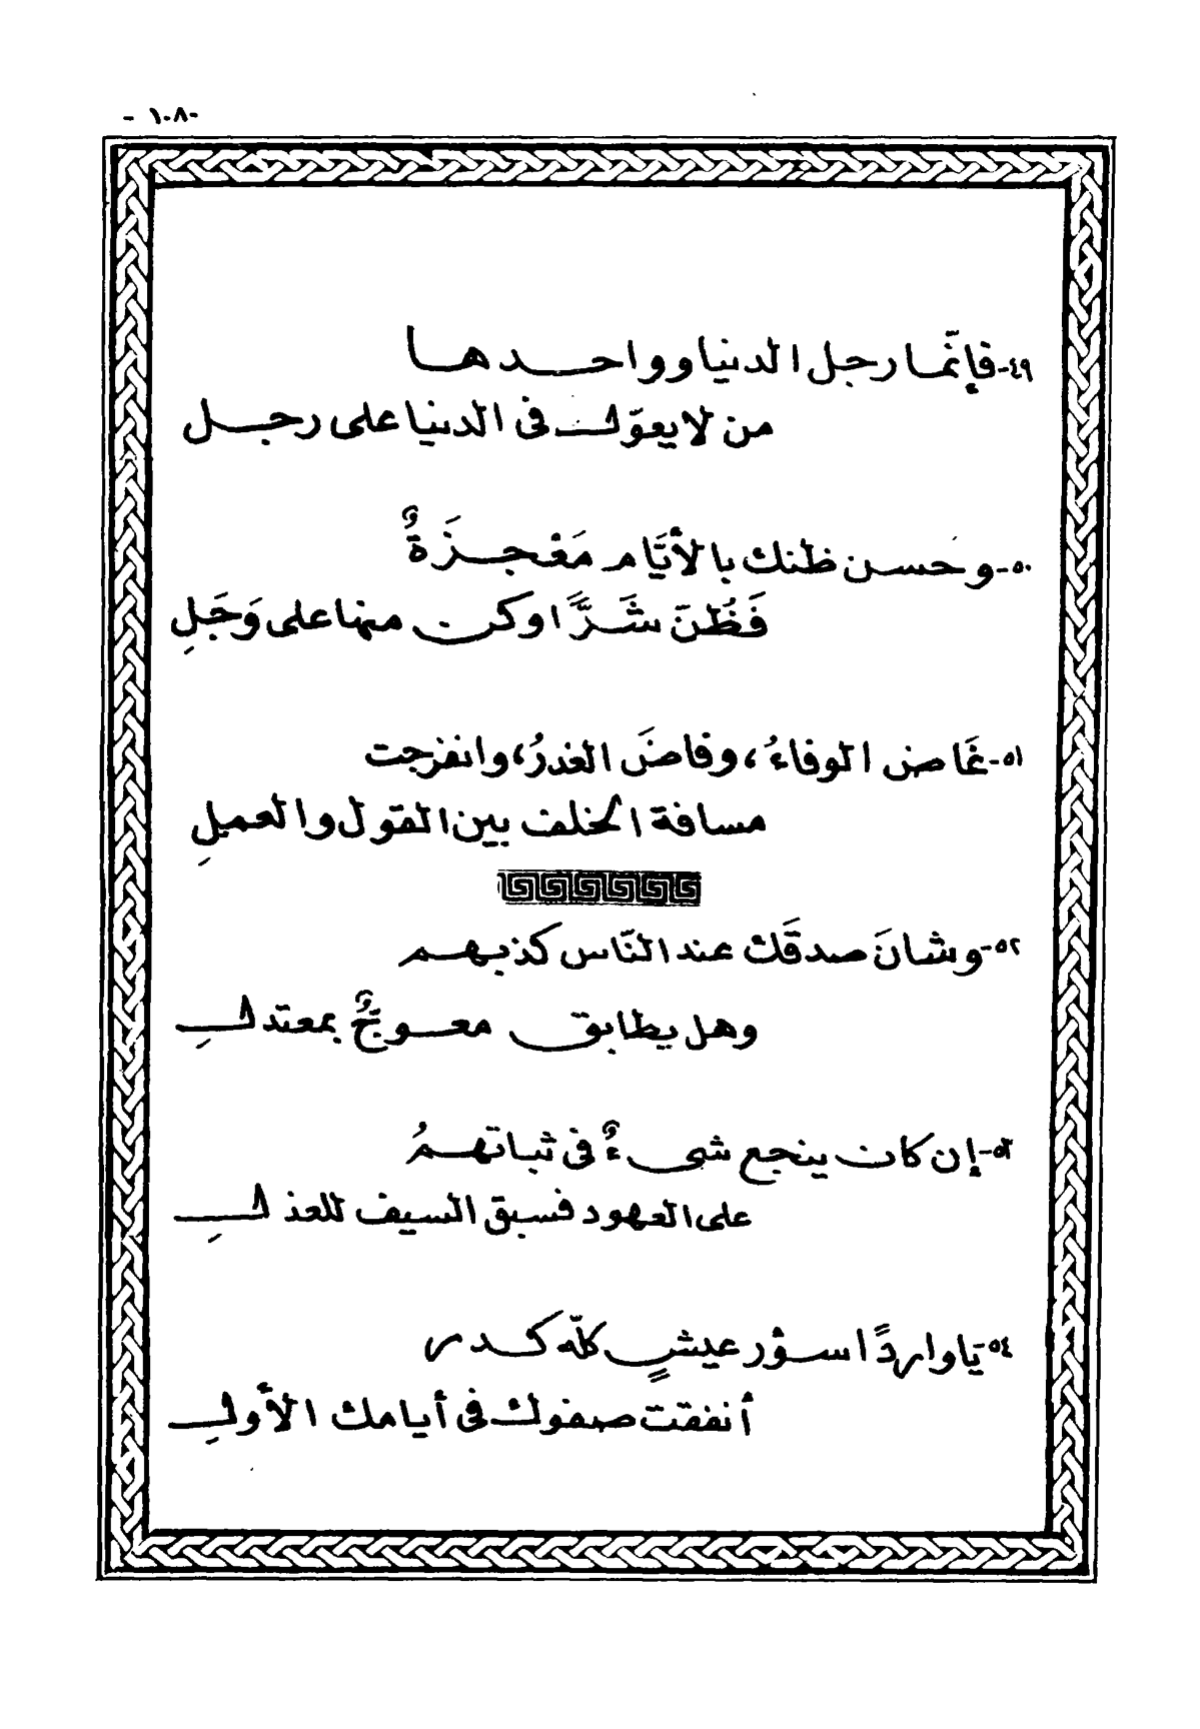 - ١٠٨-
٤٩- فإنّما رجل الدنيا وواحدها
من لا يعوّل فى الدنيا على رجل
٥٠- وحسن ظنك بالأيَّام مَعْجزَةٌ
فَظُنَّ شَرًّا وكن منها على وَجَلِ
٥١- غَاض الوفاءُ، وفاضَ الغدرُ، وانفرجت
مسافة الخلف بين القول والعملِ
٥٢- وشانَ صدقَك عند النّاس كذبهم
وهل يطابق معوجٌّ بمعتدلِ
٥٣- إن كان ينجع شىءٌ فى ثباتهمُ
على العهود فسبق السيف للعذلِ
٥٤- يا واردًا سؤر عيشٍ كلّه كدر
أنفقت صفوك فى أيامك الأولِ